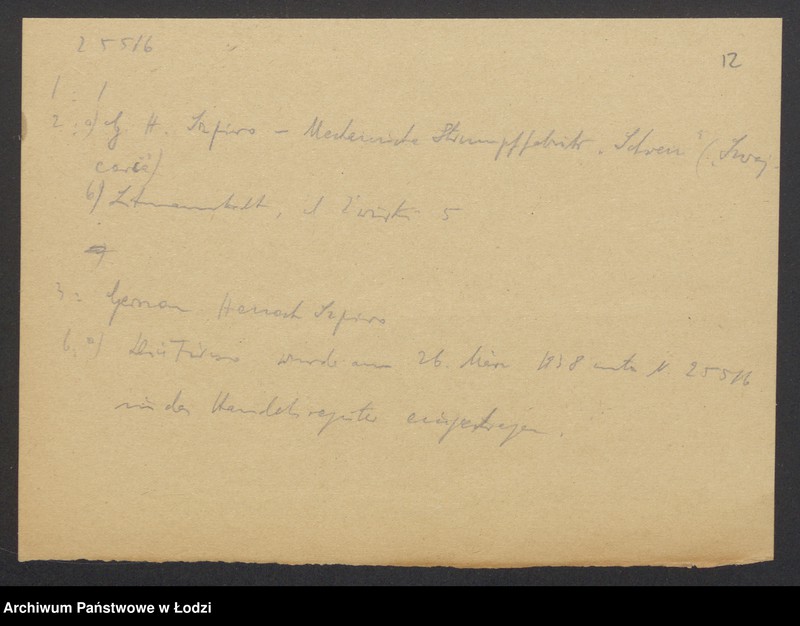 25516
12
1. 1
2. a) G. H. Szpiro – Mechanische Strumpffabrik „
b) Litzmannstadt, ul. Żwirki 5
a)
3. German Hanoch Szpiro
6. a) Die Firma wurde am 26. März 1938 unter N. 25516
in das Handelsregister eingetragen.
Archiwum Państwowe w Łodzi